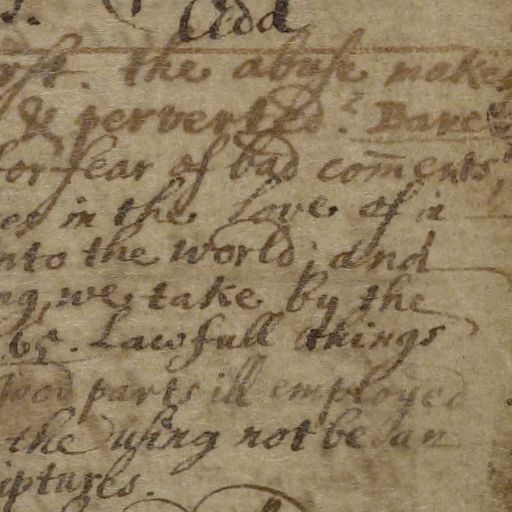 Add
the abuse make
& perverted? Bare
for fear of bad com̄ents,
in the Love of
nto the world; and
ng, we take by the
65. Lawfull things
parts ill employed
the using not be an
iptures.